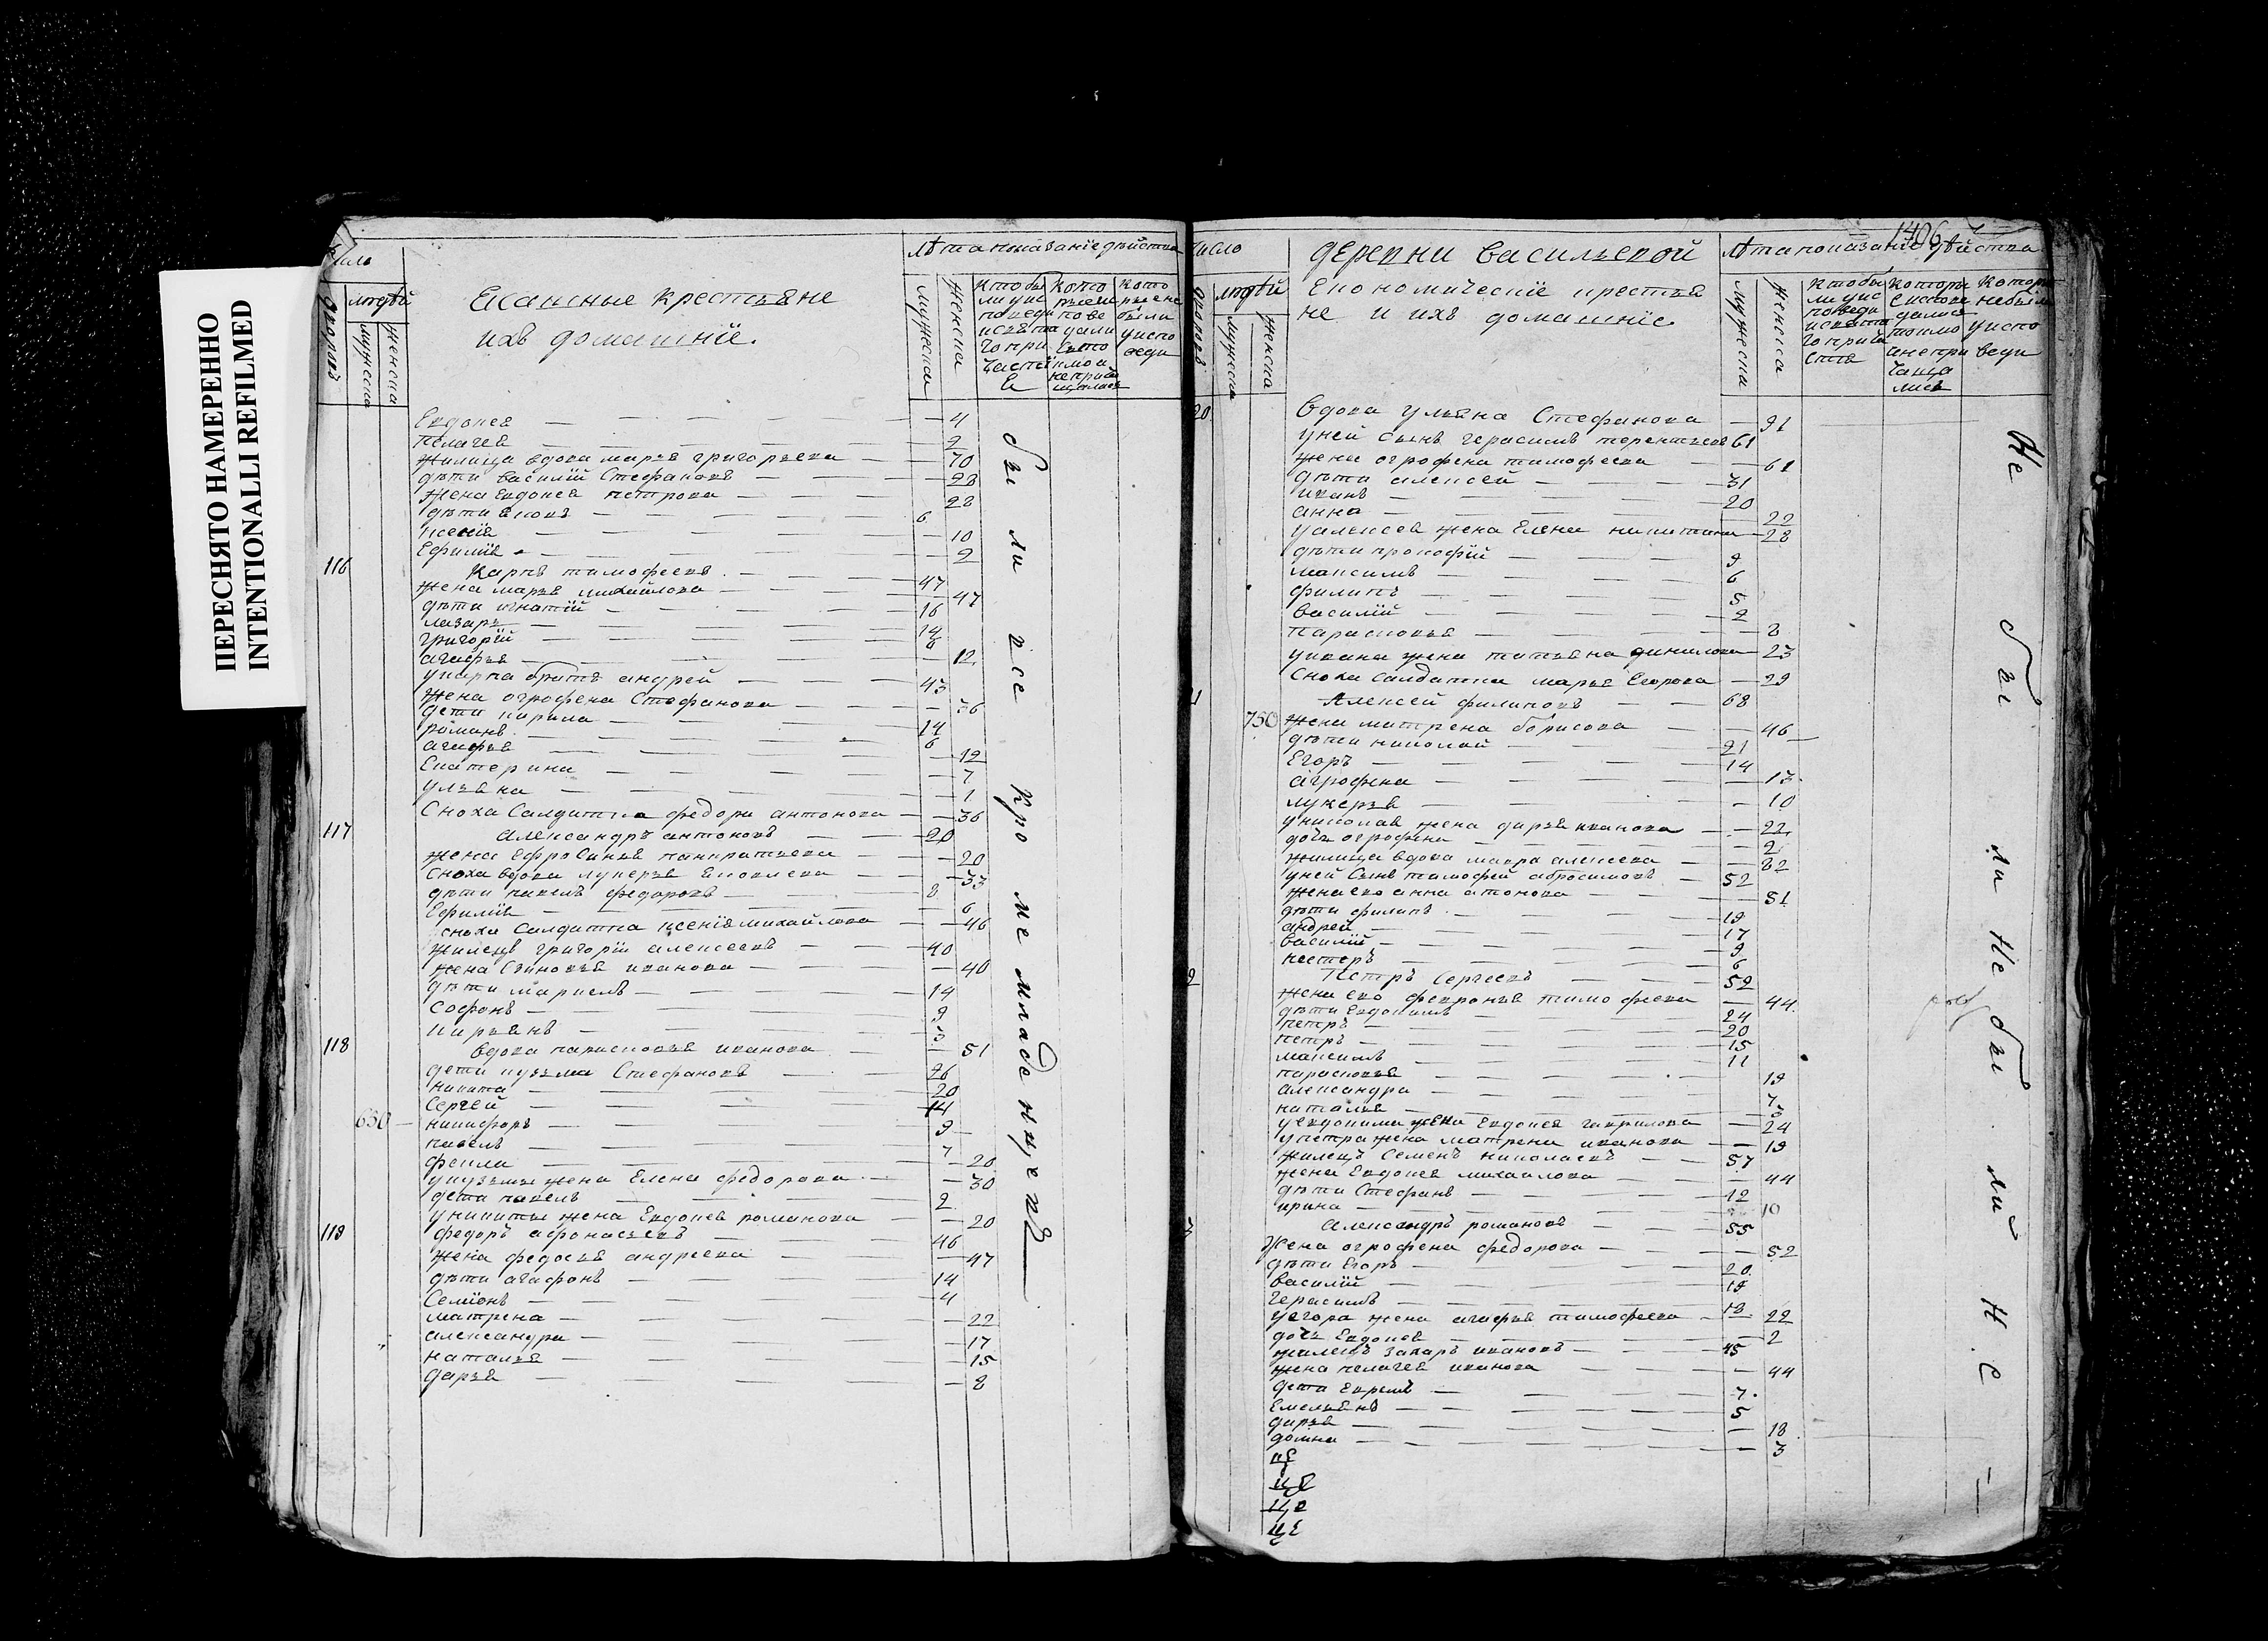 ПЕРЕСНЯТО НАМЕРЕННО
INTENTIONALLI REFILMED
число
лѣта показанїе дѣйства
дворовъ
людѣй
мужеска
женска
Ясашные крестьяне
ихъ домашнїе.
мужеска
женска
Евдокея — 4
Пелагея — 2
жилица вдова марья григорьева — 70
дѣти василїй Стефановъ — 28
жена Евдокея петрова — 28
дѣти Яковъ — 6
ксенїя — 10
Ефимїя — 2
116 Карпъ тимофеевъ — 47
жена марья михайлова — 47
дѣти игнатїй — 16
лазарь — 14
григорїй — 6
агафья — 12
у карпа братъ андрей — 43
жена огрофена Стефанова — 36
дети кирила — 14
романъ — 6
агафья — 12
Екатерина — 7
ульяна — 1
Сноха Салдатка федора антонова — 36
117 Александръ антоновъ — 20
жена Ефросинья панкратьева — 20
Сноха вдова лукерья Яковлева — 33
дѣти павелъ федоровъ — 8
Ефимїя — 6
сноха Салдатка ксенїя михайлова — 46
жилецъ григорїй алексеевъ — 40
жена Зиновья иванова — 40
дѣти маркелъ — 14
Софонъ — 9
кирьянъ — 3
118 вдова парасковья иванова — 51
дети кузьма Стефановъ — 26
никита — 20
Сергей — 14
630 никифоръ — 9
павелъ — 7
фекла — 20
у кузьмы жена Елена федорова — 30
дети павелъ — 2
у никиты жена Евдокея романова — 20
119 федоръ афонасьевъ — 46
жена федосья андреева — 47
дѣти агафонъ — 14
Семїонъ — 4
матрена — 22
александра — 17
наталья — 15
дарья — 8
бы ли все кро ме младе нцевъ
1406
число
деревни васильевой
лѣта показанїе дѣйства
дворовъ
людѣй
мужеска
женска
Економическїе крестья
не и ихъ домашнїе
мужеска
женска
20 вдова ульяна Стефанова — 91
у ней сынъ герасимъ терентьевъ 61
жена огрофена тимофеева — 61
дѣти алексей — 31
иванъ — 20
анна — 22
у алексея жена Елена никитина — 28
дѣти прокофїй — 9
максимъ — 6
филипъ — 5
василїй — 2
Парасковья — 8
у ивана жена татьяна данилова — 23
Сноха салдатка марья Егорова — 29
1 Алексей филиповъ — 68
750 жена матрена борисова — 46
дѣти николай — 21
Егоръ — 14
агрофена — 13
лукерья — 10
у николая жена дарья иванова — 22
дочь огрофена — 2
жилица вдова мавра алексеева — 82
у ней сынъ тимофей абросимовъ — 52
жена ево анна атонова — 51
дѣти филипъ — 19
андрей — 17
василїй — 9
нестеръ — 6
2 Петръ Сергеевъ — 52
жена ево февронья тимофеева — 44
дѣти Евдокимъ — 24
петръ — 20
петръ — 15
максимъ — 11
парасковья — 19
александра — 7
наталья — 3
у евдокима жена Евдокея гаврилова — 24
у петра жена матрена иванова — 19
жилецъ Семенъ николаевъ — 57
жена Евдокея михаилова — 44
дѣти Стефанъ — 12
ирина — 10
3 Александръ романовъ — 55
жена огрофена федорова — 52
дѣти Егоръ — 20
василїй — 19
герасимъ — 18
у егора жена агафья тимофеева — 22
дочь Евдокея — 2
жилецъ захаръ ивановъ — 45
жена пелагея иванова — 44
дети Ефремъ — 7
Емельянъ — 5
дарья — 18
домна — 3
Не бы ли Не бы ли Н Е